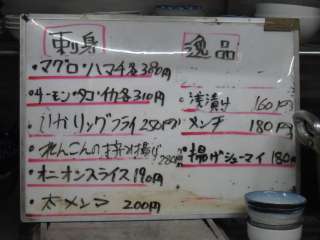 刺身
・マグロ・ハマチ各380円
・サーモン・タコ・イカ各310円
・いかリングフライ250円
・れんこんのはさみ揚げ280円
・オニオンスライス190円
・太メンマ 200円
逸品
・浅漬け 160円
・メンチ 180円
・揚げシューマイ180円